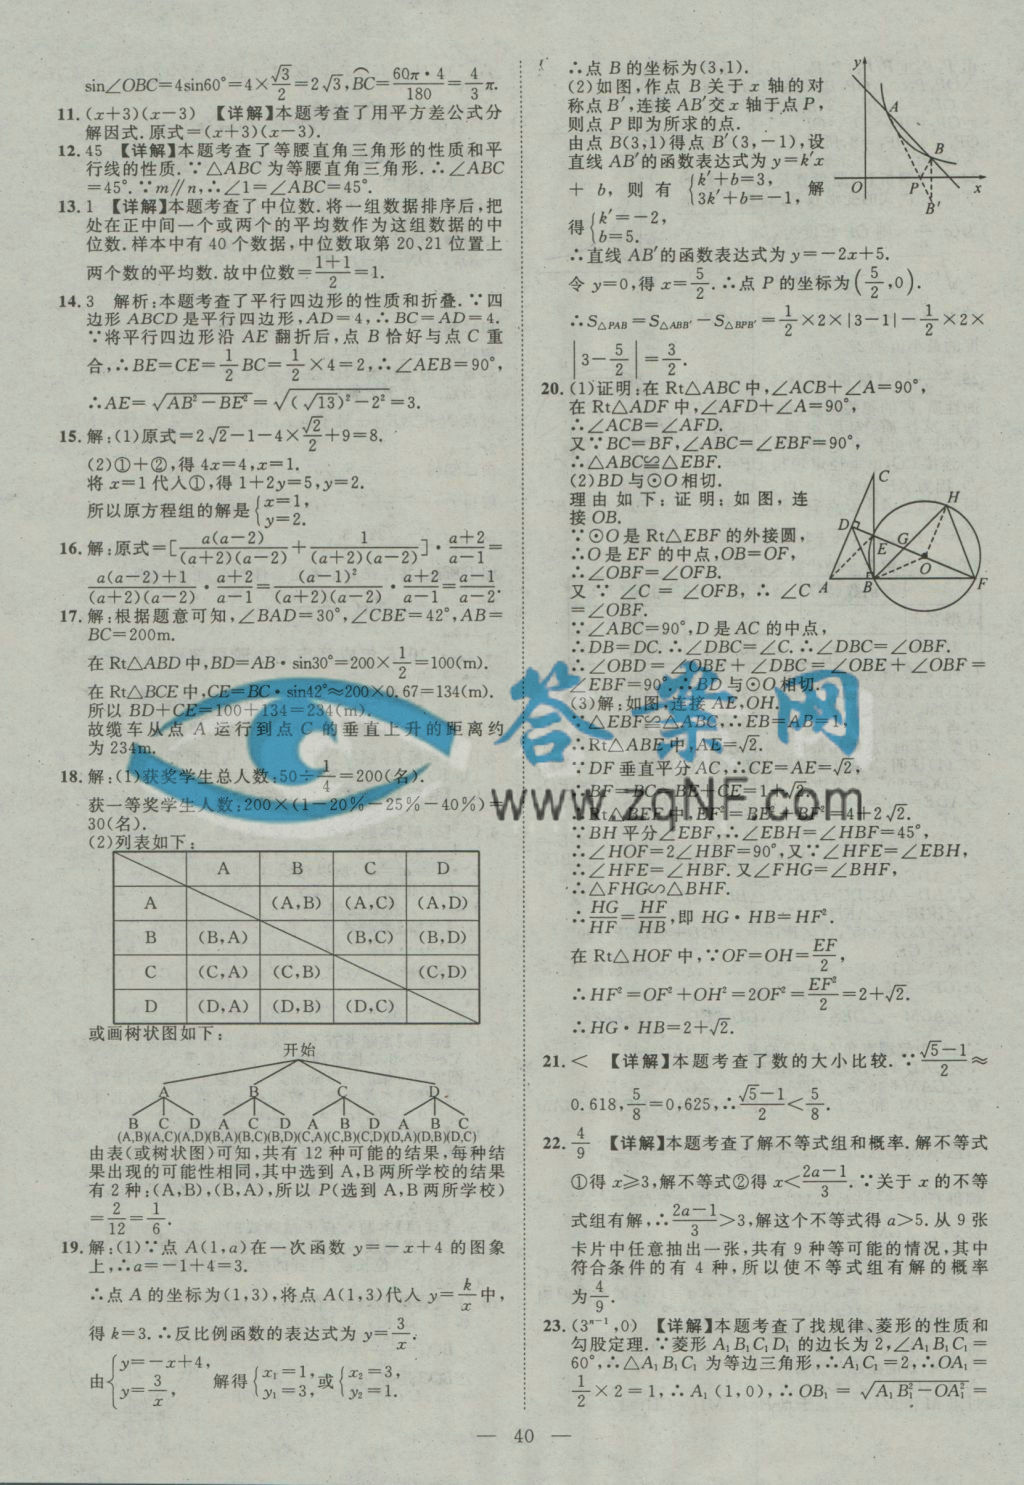 sin∠OBC=4sin60°=4×√3/2=2√3,BC⌒=60π·4/180=4/3π.
11.(x+3)(x-3) 【详解】本题考查了用平方差公式分
解因式.原式=(x+3)(x-3).
12.45 【详解】本题考查了等腰直角三角形的性质和平
行线的性质.∵△ABC为等腰直角三角形.∴∠ABC
=45°.∵m∥n,∴∠1=∠ABC=45°.
13.1 【详解】本题考查了中位数.将一组数据排序后,把
处在正中间一个或两个的平均数作为这组数据的中
位数.样本中有40个数据,中位数取第20、21位置上
两个数的平均数.故中位数=(1+1)/2=1.
14.3 解析:本题考查了平行四边形的性质和折叠.∵四
边形ABCD是平行四边形,AD=4,∴BC=AD=4.
∵将平行四边形沿AE翻折后,点B恰好与点C重
合,∴BE=CE=1/2BC=1/2×4=2,∴∠AEB=90°,
∴AE=√(AB²-BE²)=√((√13)²-2²)=3.
15.解:(1)原式=2√2-1-4×√2/2+9=8.
(2)①+②,得4x=4,x=1.
将x=1代人①,得1+2y=5,y=2.
所以原方程组的解是{x=1, y=2.
16.解:原式=[a(a-2)/(a+2)(a-2)+1/(a+2)(a-2)]·(a+2)/(a-1)=
(a(a-2)+1)/(a+2)(a-2)·(a+2)/(a-1)=(a-1)²/(a+2)(a-2)·(a+2)/(a-1)=(a-1)/(a-2).
17.解:根据题意可知,∠BAD=30°,∠CBE=42°,AB=
BC=200m.
在Rt△ABD中,BD=AB·sin30°=200×1/2=100(m).
在Rt△BCE中,CE=BC·sin42°≈200×0.67=134(m).
所以BD+CE=100+134=234(m).
故缆车从点A运行到点C的垂直上升的距离约
为234m.
18.解:(1)获奖学生总人数:50÷1/4=200(名).
获一等奖学生人数:200×(1-20%-25%-40%)=
30(名).
(2)列表如下:
A B C D
A (A,B) (A,C) (A,D)
B (B,A) (B,C) (B,D)
C (C,A) (C,B) (C,D)
D (D,A) (D,B) (D,C)
或画树状图如下:
开始
A B C D
B C D A C D A B D A B C
(A,B)(A,C)(A,D)(B,A)(B,C)(B,D)(C,A)(C,B)(C,D)(D,A)(D,B)(D,C)
由表(或树状图)可知,共有12种可能的结果,每种结
果出现的可能性相同,其中选到A,B两所学校的结果
有2种:(A,B),(B,A),所以P(选到A,B两所学校)
=2/12=1/6.
19.解:(1)∵点A(1,a)在一次函数y=-x+4的图象
上,∴a=-1+4=3.
∴点A的坐标为(1,3),将点A(1,3)代人y=k/x中,
得k=3.∴反比例函数的表达式为y=3/x.
由{y=-x+4, y=3/x, 解得{x₁=1, y₁=3,或{x₂=3, y₂=1.
∴点B的坐标为(3,1).
(2)如图,作点B关于x轴的对
称点B′,连接AB′交x轴于点P,
则点P即为所求的点.
由点B(3,1)得点B′(3,-1),设
直线AB′的函数表达式为y=k′x
+b,则有{k′+b=3, 3k′+b=-1,解
得{k′=-2, b=5.
y A B O P x B′
∴直线AB′的函数表达式为y=-2x+5.
令y=0,得x=5/2.∴点P的坐标为(5/2,0).
∴S△PAB=S△ABB′-S△BPB′=1/2×2×|3-1|-1/2×2×
|3-5/2|=3/2.
20.(1)证明:在Rt△ABC中,∠ACB+∠A=90°,
在Rt△ADF中,∠AFD+∠A=90°,
∴∠ACB=∠AFD.
又∵BC=BF,∠ABC=∠EBF=90°,
∴△ABC≌△EBF.
(2)BD与⊙O相切.
理由如下:证明:如图,连
接OB.
∵⊙O是Rt△EBF的外接圆,
∴O是EF的中点,OB=OF,
∴∠OBF=∠OFB.
又∵∠C=∠OFB,∴∠C
=∠OBF.
C H D E G O A B F
∵∠ABC=90°,D是AC的中点,
∴DB=DC.∴∠DBC=∠C.∴∠DBC=∠OBF.
∴∠OBD=∠OBE+∠DBC=∠OBE+∠OBF=
∠EBF=90°.∴BD与⊙O相切.
(3)解:如图,连接AE,OH.
∵△EBF≌△ABC,∴EB=AB=1,
∴Rt△ABE中,AE=√2.
∵DF垂直平分AC,∴CE=AE=√2,
∴BF=BC=BE+CE=1+√2.
∴Rt△BEF中,EF²=BE²+BF²=4+2√2.
∵BH平分∠EBF,∴∠EBH=∠HBF=45°,
∴∠HOF=2∠HBF=90°,又∵∠HFE=∠EBH,
∴∠HFE=∠HBF.又∠FHG=∠BHF,
∴△FHG∽△BHF.
∴HG/HF=HF/HB,即HG·HB=HF².
在Rt△HOF中,∵OF=OH=EF/2,
∴HF²=OF²+OH²=2OF²=EF²/2=2+√2.
∴HG·HB=2+√2.
21.< 【详解】本题考查了数的大小比较.∵(√5-1)/2≈
0.618,5/8=0,625,∴(√5-1)/2<5/8.
22.4/9 【详解】本题考查了解不等式组和概率.解不等式
①得x≥3,解不等式②得x<(2a-1)/3.∵关于x的不等
式组有解,∴(2a-1)/3>3,解这个不等式得a>5.从9张
卡片中任意抽出一张,共有9种等可能的情况,其中
符合条件的有4种,所以使不等式组有解的概率
为4/9.
23.(3ⁿ⁻¹,0) 【详解】本题考查了找规律、菱形的性质和
勾股定理.∵菱形A₁B₁C₁D₁的边长为2,∠A₁B₁C₁=
60°,∴△A₁B₁C₁为等边三角形,∴A₁C₁=2,∴OA₁=
1/2×2=1,∴A₁(1,0),∴OB₁=√(A₁B₁²-OA₁²)=
答案网
www.zqNF.com
— 40 —